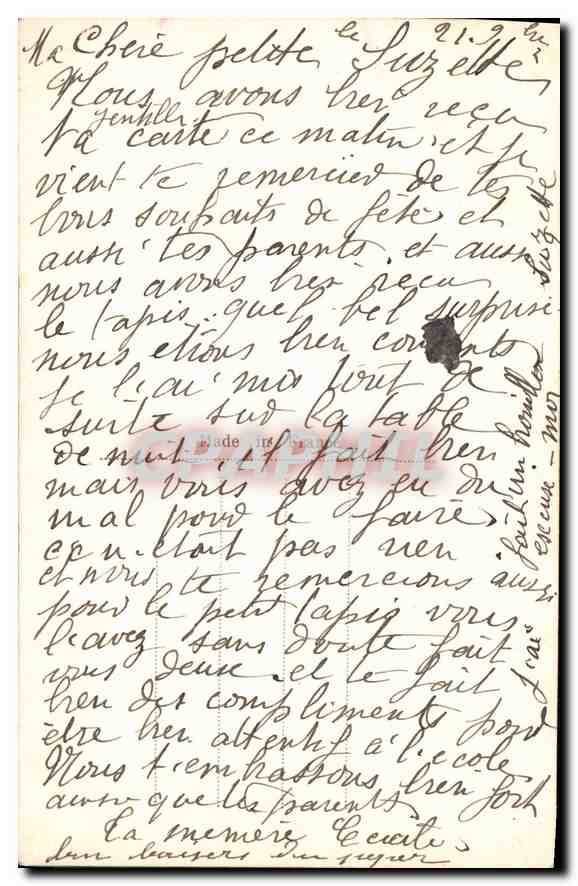 le 21. 9bre
Ma Chère petite Suzette
Nous avons bien reçu
ta gentille carte ce matin et je
vient te remercier de tes
bons souhaits de fête et
aussi tes parents et aussi
nous avons bien reçu
le tapis quel bel surprise
nous etions bien contents
je l'ai mis tout de
suite sur la table
de nuit il fait bien
mais vous avez eu du
mal pour le faire
ce n'etait pas rien
et nous te remercions aussi
pour le petit tapis vous
l'avez sans doute fait
vous deux et te fait
bien des compliments pour
être bien attentif a l'ecole
Nous t'embrassons bien fort
ainsi que tes parents
Ta memère
bon baisers du
Made in France
CPAPHIL
j'ai fait un
excuse-moi Suzette